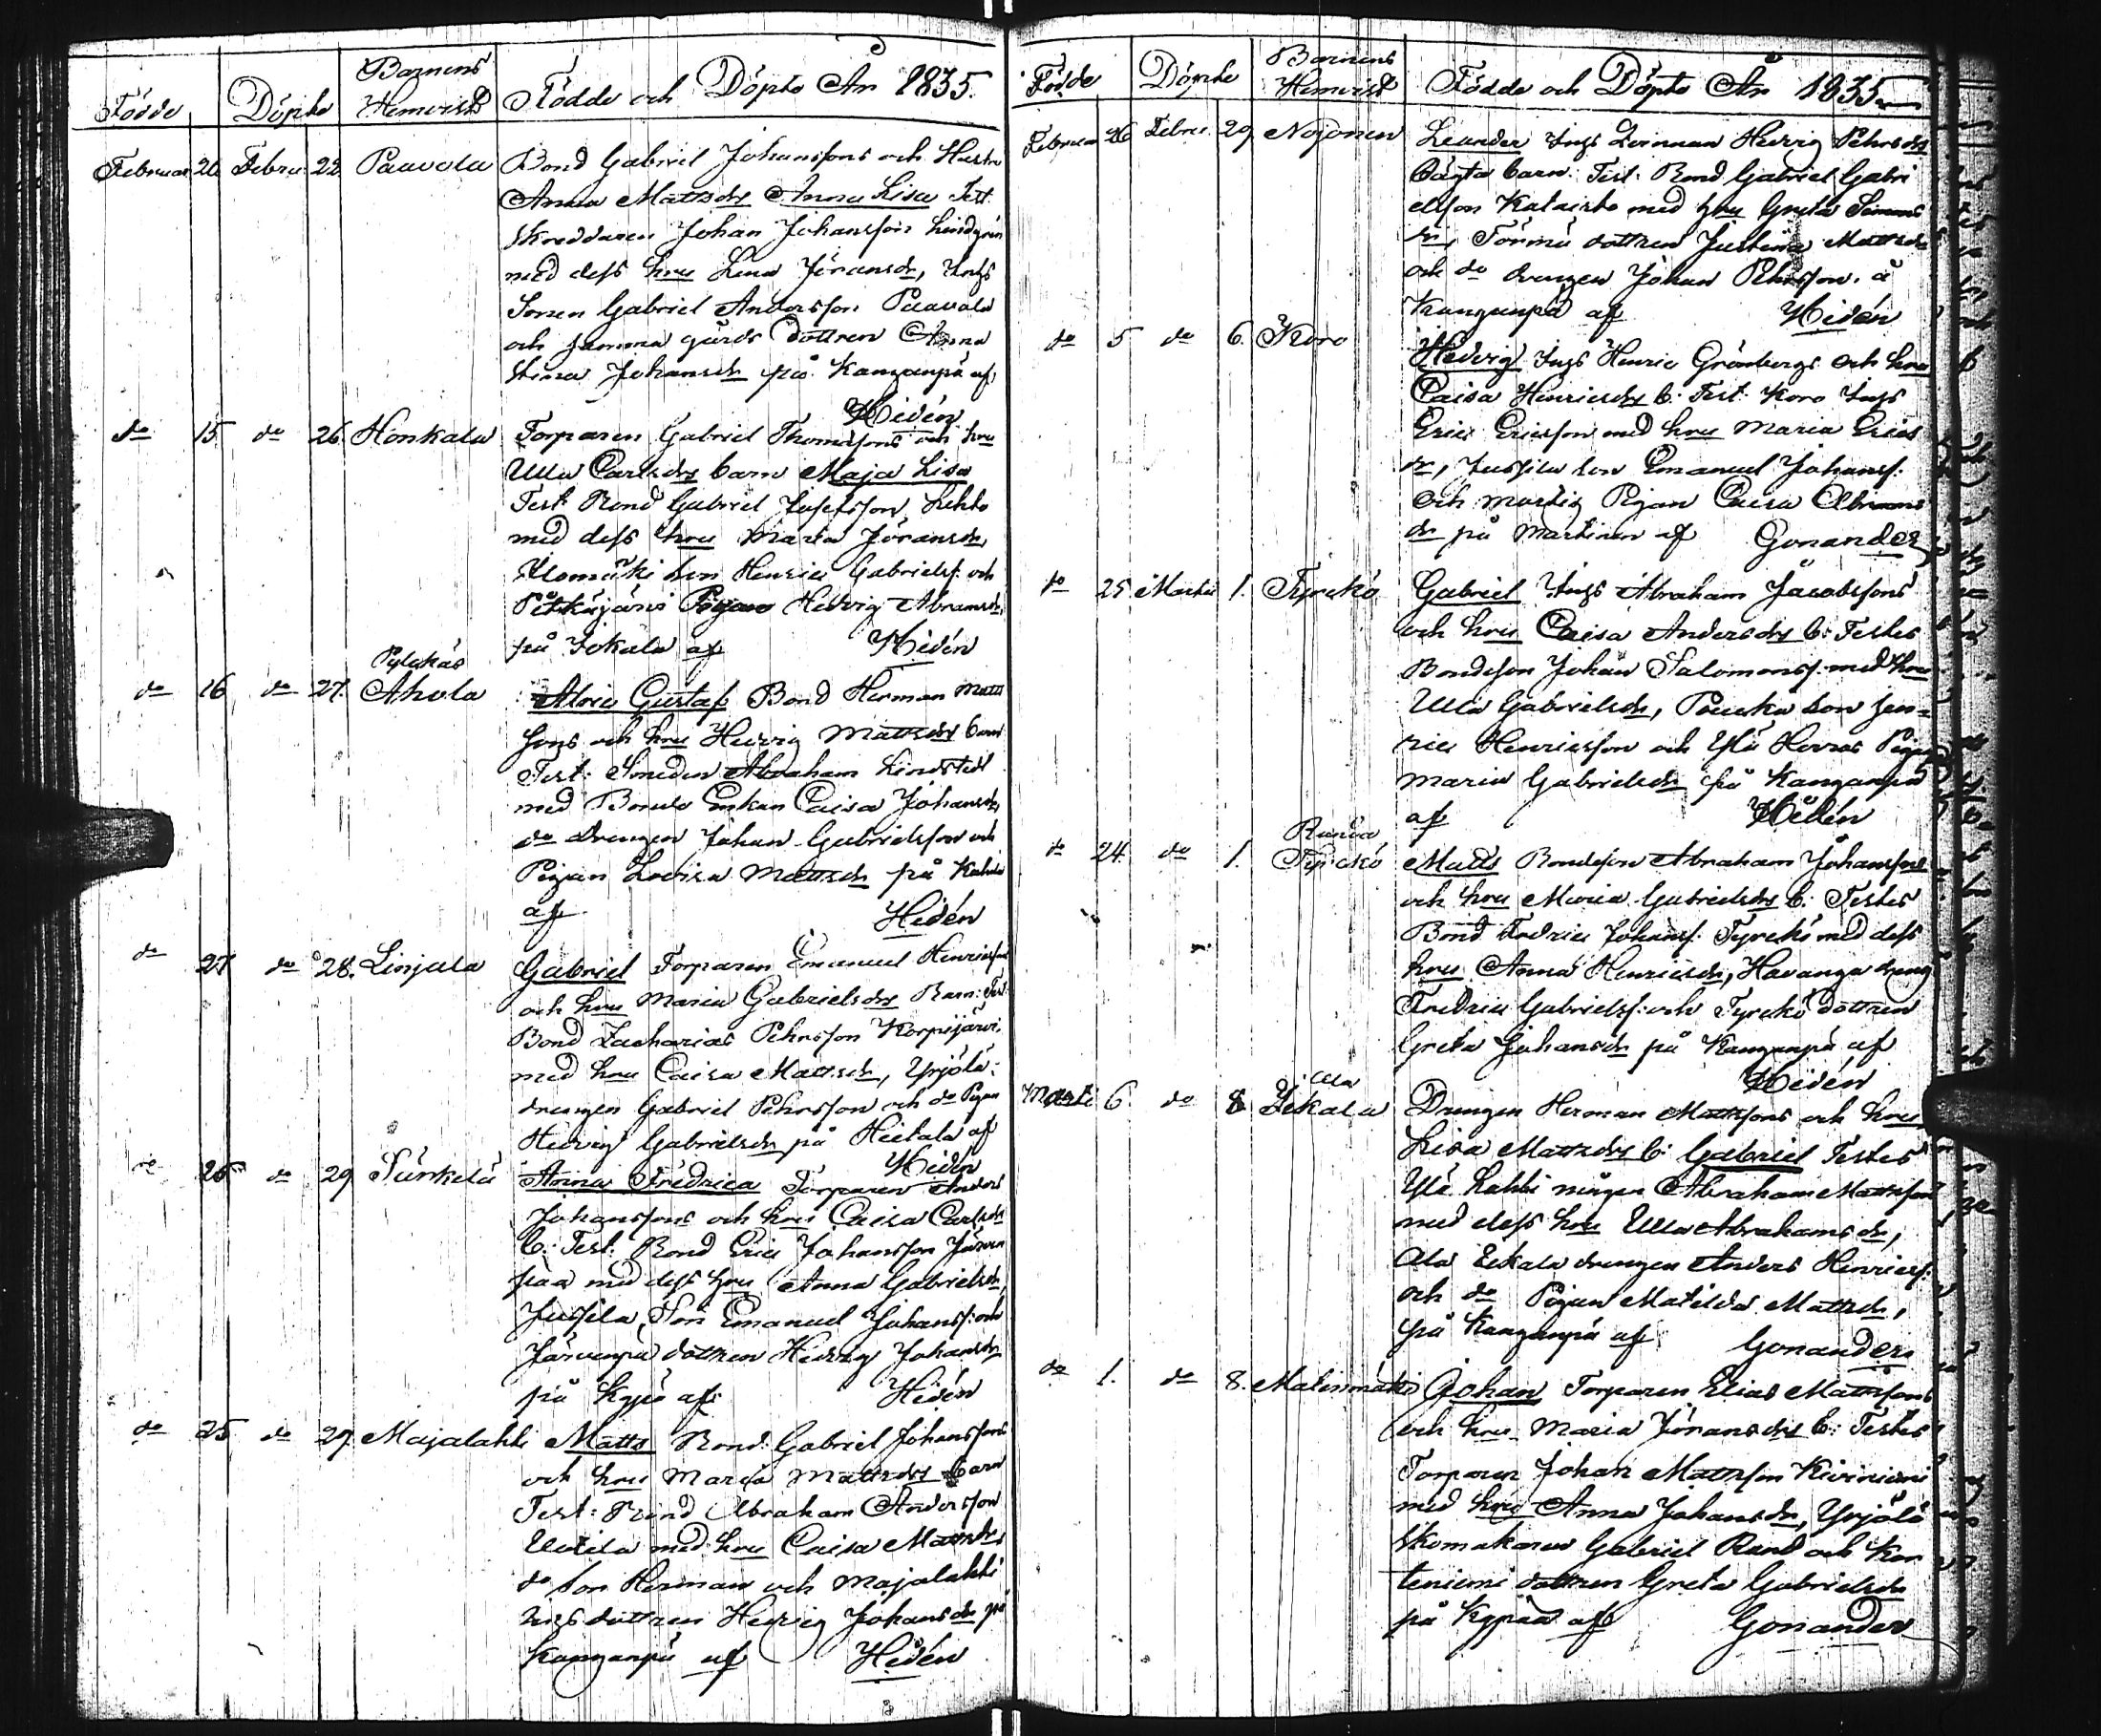 Födde Döpte Barnens Hemvist Födde och Döpte År 1835.
Februar 20. Febru 22. Paavola Bond Gabriel Johanssons och Hustru
Anna Mattsdrs Anna Lisa Test
Skreddaren Johan Johansson Lindgrén
med dess hru Lena Jöransdr, Inhs
Sonen Gabriel Andersson Paavola
och samma gårds dottren Anna
Stina Johansdr på Kanganpä af
Hidén
do 15. do 26. Honkala Torparen Gabriel Thomassons och hru
Ulla Carlsdrs barn Maja Lisa
Test Bond Gabriel Josefsson Lehto
med dess hru Maria Jöransdr,
son Henric Gabrielss: och
Pigan Hedvig Abramsdr,
på Jokala af Hidén
Pylckäs
do 16 do 27. Ahola Alric Gustaf Bond Herman Matts
sons och hru Hedvig Mattsdrs barn
Test: Smeden Abraham Lindstedt
med Bonde Enkan Caisa Johansdr,
do Drengen Johan Gabrielsson och
Pigan Lovisa Mattsdr på
af Hidén
do 27 do 28. Linjala Gabriel Torparen Emanuel Henricssons
och hru Maria Gabrielsdrs Barn: Test:
Bond Zacharias Pehrsson Korpijärvi
med hru Caisa Mattsdr, Yrjölä
drengen Gabriel Pehrsson och do Pigan
Hedvig Gabrielsdr på Hietala af
Hidén
25 do 29 Särkelä Anna Fredrica Torparen Anders
Johanssons och hru Caisa Carlsdrs
b: Test: Bond Eric Johansson Järven
pää med dess hru Anna Gabrielsdr,
Jussila Son Emanuel Johanss: och
Järvenpä dottren Hedvig Johansdr
på Kypä af Hidén
do 25 do 29. Majalahti Matts Bond Gabriel Johanssons
och hru Maria Mattsdrs barn
Test: Bond Abraham Andersson
Uutila med hru Caisa Mattsdr,
do son Herman och Majalahti
Inhs dottren Hedvig Johansdr på
Kanganpä af Hidén
Födde Döpte Barnens Hemvist Födde och Döpte År 1835
Februar 26 Febru. 29. Nojonen Leander Inhs Qvinnan Hedvig Pehrsdrs
oägta barn. Test: Bond Gabriel Gabri
elsson Kataisto med hru Greta Simons
dr, Törmä dottren Justina Mattsdr
och do drengen Johan Pehrsson. å
Kanganpä af Hidén
do 5 do 6. Koro Hedvig Inhs Henric Grönbergs och hru
Caisa Henricsdrs b. Test: Koro Inhs
Eric Ericsson med hru Maria Erics
dr, Jussila son Emanuel Johanss:
och Pigan Caisa Abrams
dr på Martinen af Gonander
do 25 Martii 1. Tyrckö Gabriel Inhs Abraham Jacobssons
och hru Caisa Andersdrs b: Testes
Bondeson Johan Salomonss: med hru
Ulla Gabrielsdr, son Hen=
ric Henricsson och Yli Pigan
Maria Gabrielsdr på Kanganpä
af Hidén
do 24. do 1. Tyrckö Matts Bondeson Abraham Johanssons
och hru Maria Gabrielsdrs b: Testes
Bond Fredric Johanss: Tyrckö med dess
hru Anna Henricsdr, Havanga dreng
Fredric Gabrielss: och Tyrckö dottren
Greta Johansdr på Kanganpä af
Hidén
Ala
Martii 6. do 8. Jekala Drengen Herman Mattssons och hru
Lisa Mattsdrs b: Gabriel Testes
Yli Lahti mågen Abraham Mattsson
med dess hru Ulla Abrahamsdr,
Ala Eekala drengen Anders Henricss:
och do Pigan Matilda Mattsdr,
på Kanganpä af Gonander
do 1. do 8. Matinmäki Johan Torparen Elias Mattssons
och hru Maria Jöransdrs b: Testes
Torparen Johan Mattsson Kiviniemi
med hru Anna Johansdr, Yrjölä
Skomakaren Gabriel Rand och Kor
teniemi dottren Greta Gabrielsdr
på Kypää af Gonander